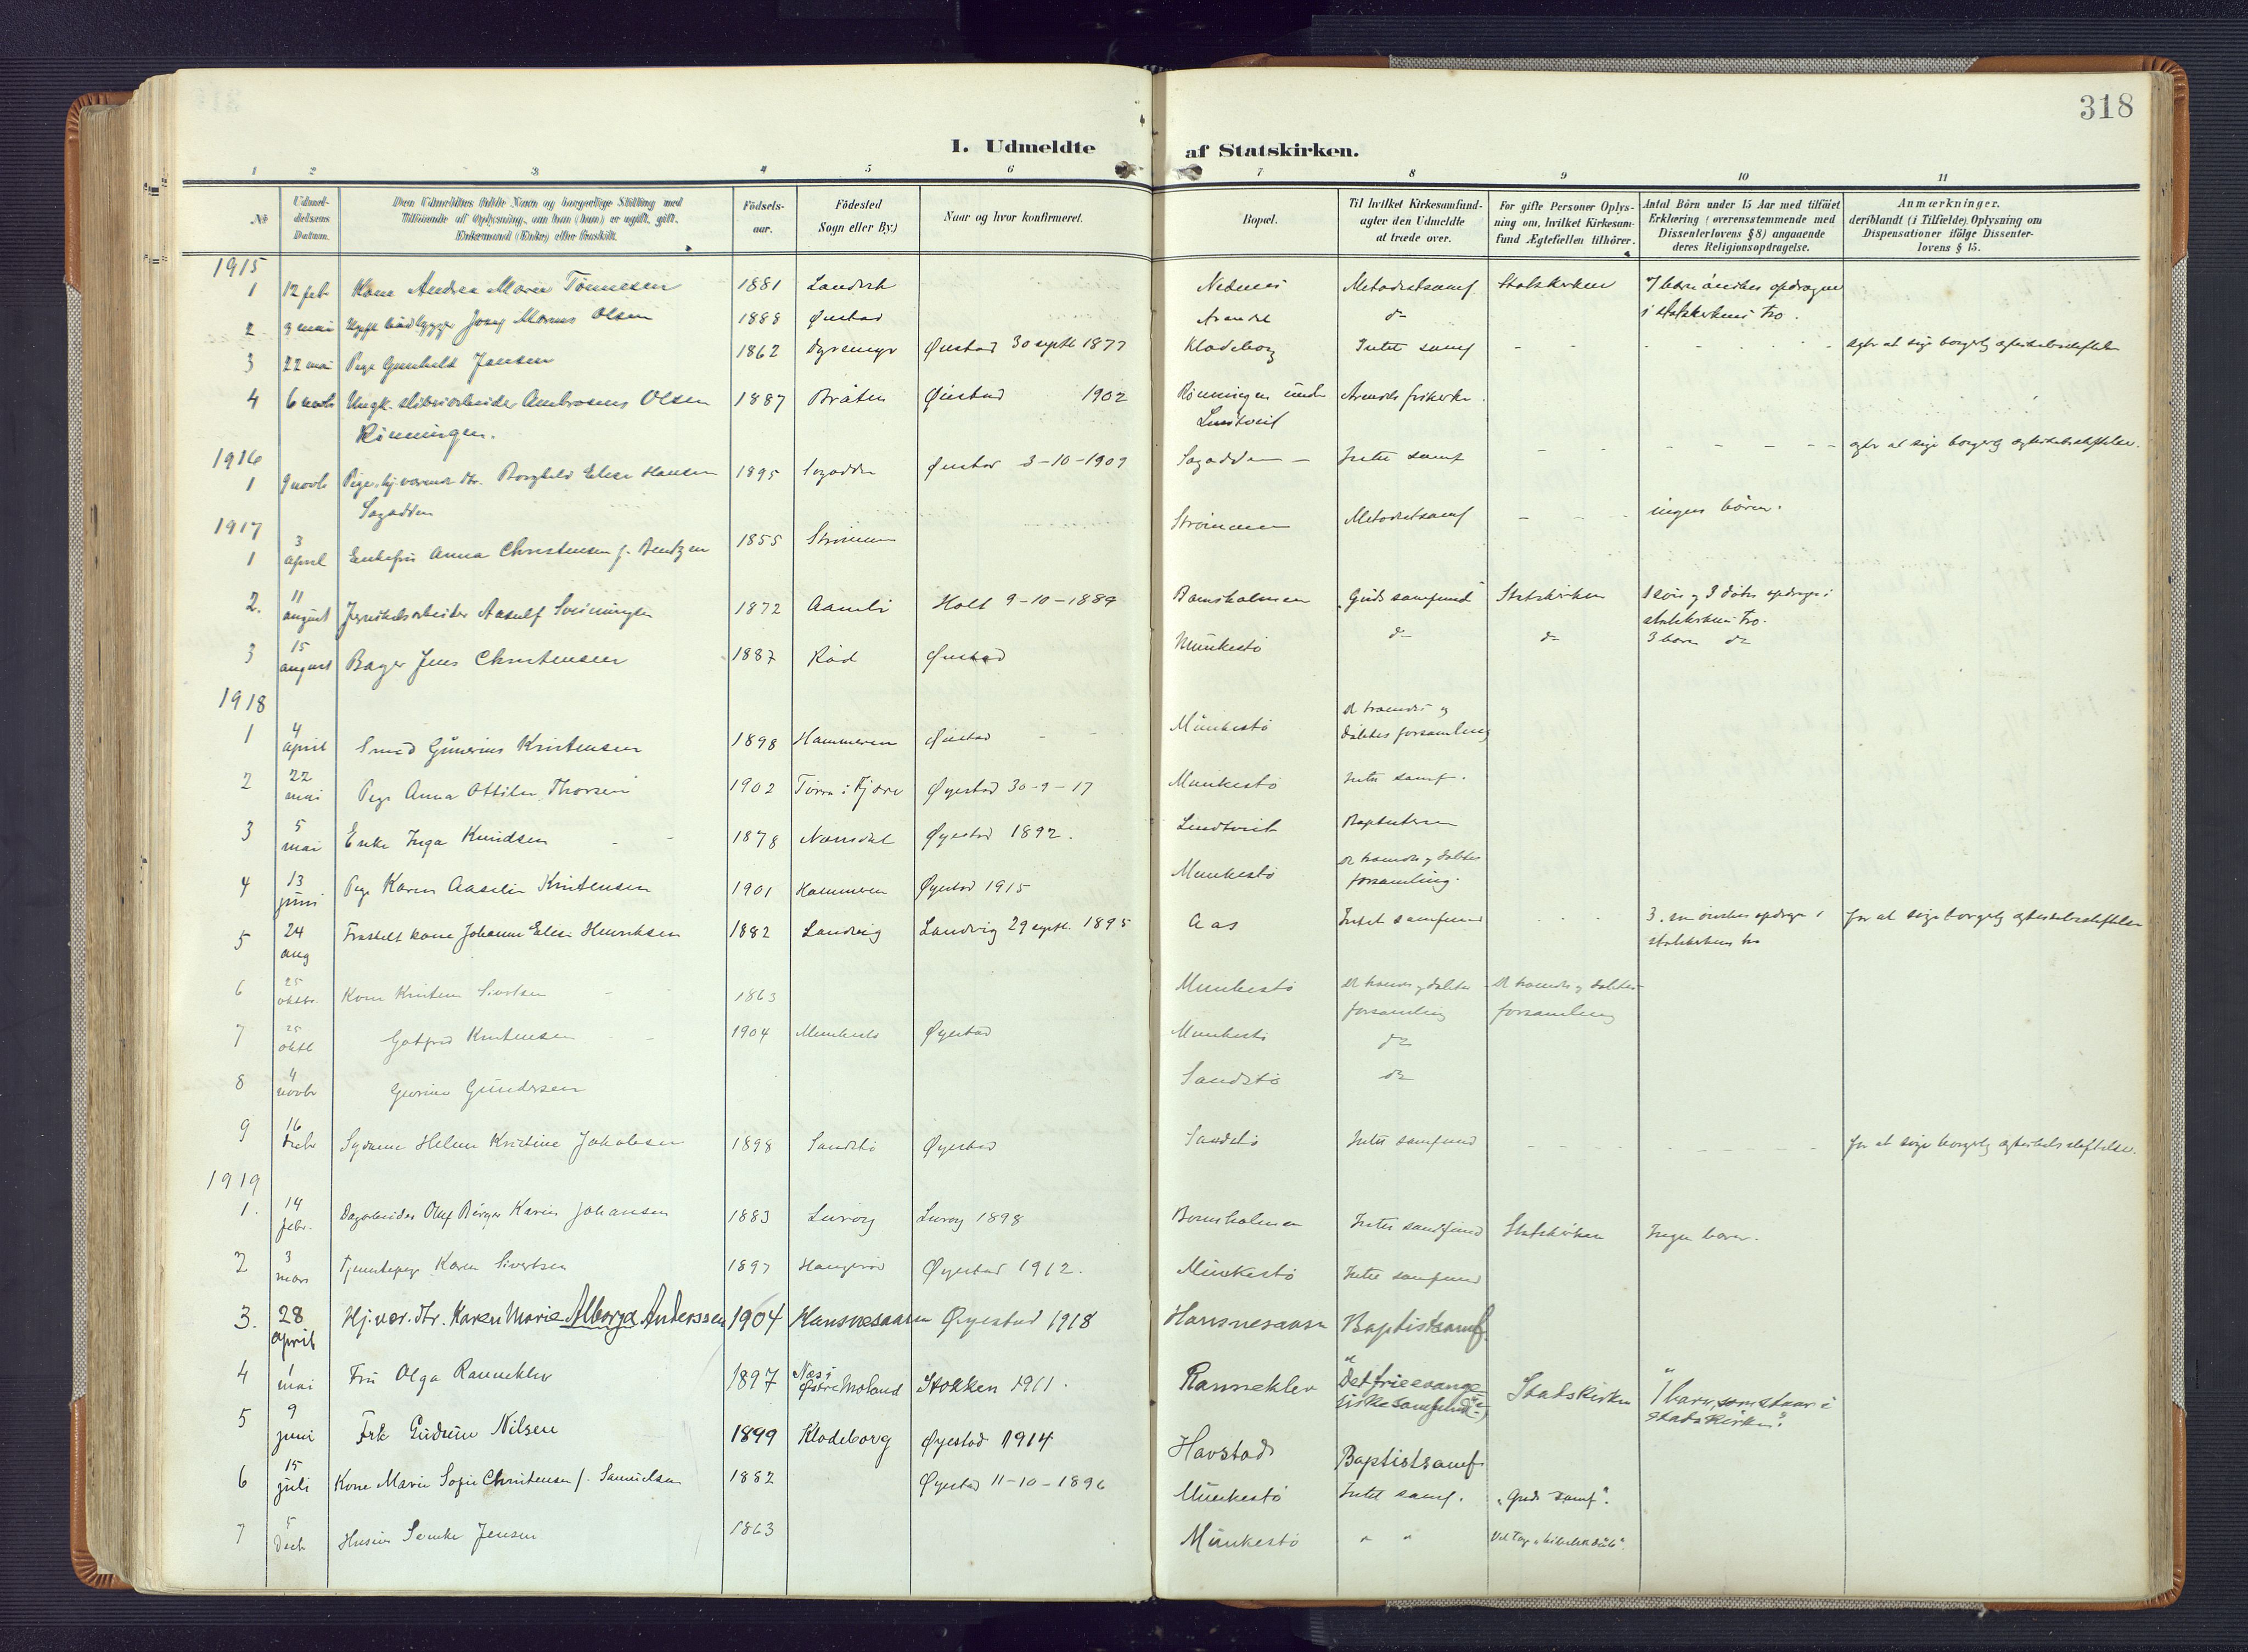 318
I. Udmeldte af Statskirken.
1 2 3 4 5 6 7 8 9 10 11
No
Udmel-
delsens
Datum.
Den Udmeldtes fulde Navn og borgerlige Stilling med
Tilføiende af Oplysning, om han (hun) er ugift, gift,
Enkemand (Enke) eller fraskilt.
Födsels-
aar.
Födested
Sogn eller By.)
Naar og hvor konfirmeret.
Bopæl.
Til hvilket Kirkesamfund-
agter den Udmeldte
at træde over.
For gifte Personer Oplys-
ning om, hvilket Kirkesam-
fund Ægtefællen tilhörer.
Antal Börn under 15 Aar med tilföiet
Erklæring (overensstemmende med
Dissenterlovens § 8) angaaende
deres Religionsopdragelse.
Anmærkninger,
deriblandt (i Tilfælde) Oplysning om
Dispensationer ifölge Dissenter-
lovens § 15.
1915
1 12 feb Kone Andrea Marie Tönnesen 1881 Landvik Nedenes Metodistsamf Statskirken 7 børn önskes opdragne
i statskirkens tro.
2 3 mai Josef Olsen 1888 Øiestad Arendal do
3 22 mai Pige Gunhild Jensen 1862 Dyremyr Øiestad 30 septb 1877 Klodeborg Intet samf agter at søge borgerlig ægteskabsstiftelse
4 6 novb Ungk. sliberiarbeider Ambrosius Olsen 1887 Bråten Øiestad 1902 Rönningen under Arendals frikirke.
Rönningen. Lindtveit
1916
1 9 novb Pige, hj.værende dtr. Borghild Elise Hansen 1895 Sagodden Øiestad 3-10-1909 Sagodden Intet samf agter at søge borgerlig ægteskabsstiftelse.
Sagodden
1917
1 3 april Enkefru Anna Christensen f. Bentzen 1855 Strömmen Strömmen Metodistsamf ingen börn.
2. 11 august Aasulf 1872 Aamli Holt 9-10-1887 Bomsholmen "Guds samfund" Statskirken 1 sön og 3 døtre opdrages i
statskirkens tro.
3 15 august Bager Jens Christensen 1887 Röd Øiestad Munkestö do do 3 barn do
1918
1 4 april Smed Gunerius Kristensen 1898 Hammeren Øiestad Munkestö de troendes og
døbtes forsamling
2 22 mai Pige Anna Ottilie Thorsen 1902 Øyestad 30-9-17 Munkestö Intet samf.
3 5 mai Enke Inga Knudsen 1878 Natvedal Øyestad 1892. Lindtveit Baptisterne
4 13 juni Pige Karen Aaselie Kristensen 1901 Hammeren Øyestad 1915 Munkestö de troendes og døbtes
forsamling.
5 24 aug Fraskilt kone Johanne Elise Henriksen 1882 Landvig Landvig 29 septb. 1895 Aas Intet samfund 3. som önskes opdraget i for at söge borgerlig ægteskabsstiftelse
statskirkens tro
6 25 oktbr. Kone Kristine Sivertsen 1863 Munkestö de troendes og döbtes de troendes og döbtes
forsamling forsamling
7 25 oktb Gotfred Kristensen 1904 Munkestö Øyestad Munkestö do
8 4 novbr Gundersen Sandstö do
9 16 decbr Helene Kristine Jakobsen 1898 Sandstö Øyestad Sandstö Intet samfund for at söge borgerlig ægteskabsstiftelse.
1919
1. 14 febr. Dagarbeider Oluf Birger Karin Johansen 1883 Luröy Luröy 1898 Bomsholmen Intet samfund Statskirken Ingen barn.
2 3 mars Tjenestepige Karen Sivertsen 1897 Øyestad 1912. Munkestö Intet samfund
3. 28 april Hj. vær. dtr. Karen Marie Alborga Anderssen 1904 Hansnesaasen Øyestad 1918 Hansnesaasen Baptistsamf.
4 1 mai Fru Olga Ranneklev 1897 Næs i
Østre Moland Stokken 1911. Ranneklev "Det frie evange-
liske samfund" Statskirken "1 barn, som staar i
statskirken".
5 9 juni Frk Gudrun Nilsen 1899 Klodeborg Øyestad 1914 Havstad Baptistsamf.
6 15 juli Kone Marie Sofie Christensen f. Samuelsen 1882 Øyestad 11-10-1896 Munkestö Intet samf. "Guds samf".
7 5 Decb Jensen 1863 Munkestö " "